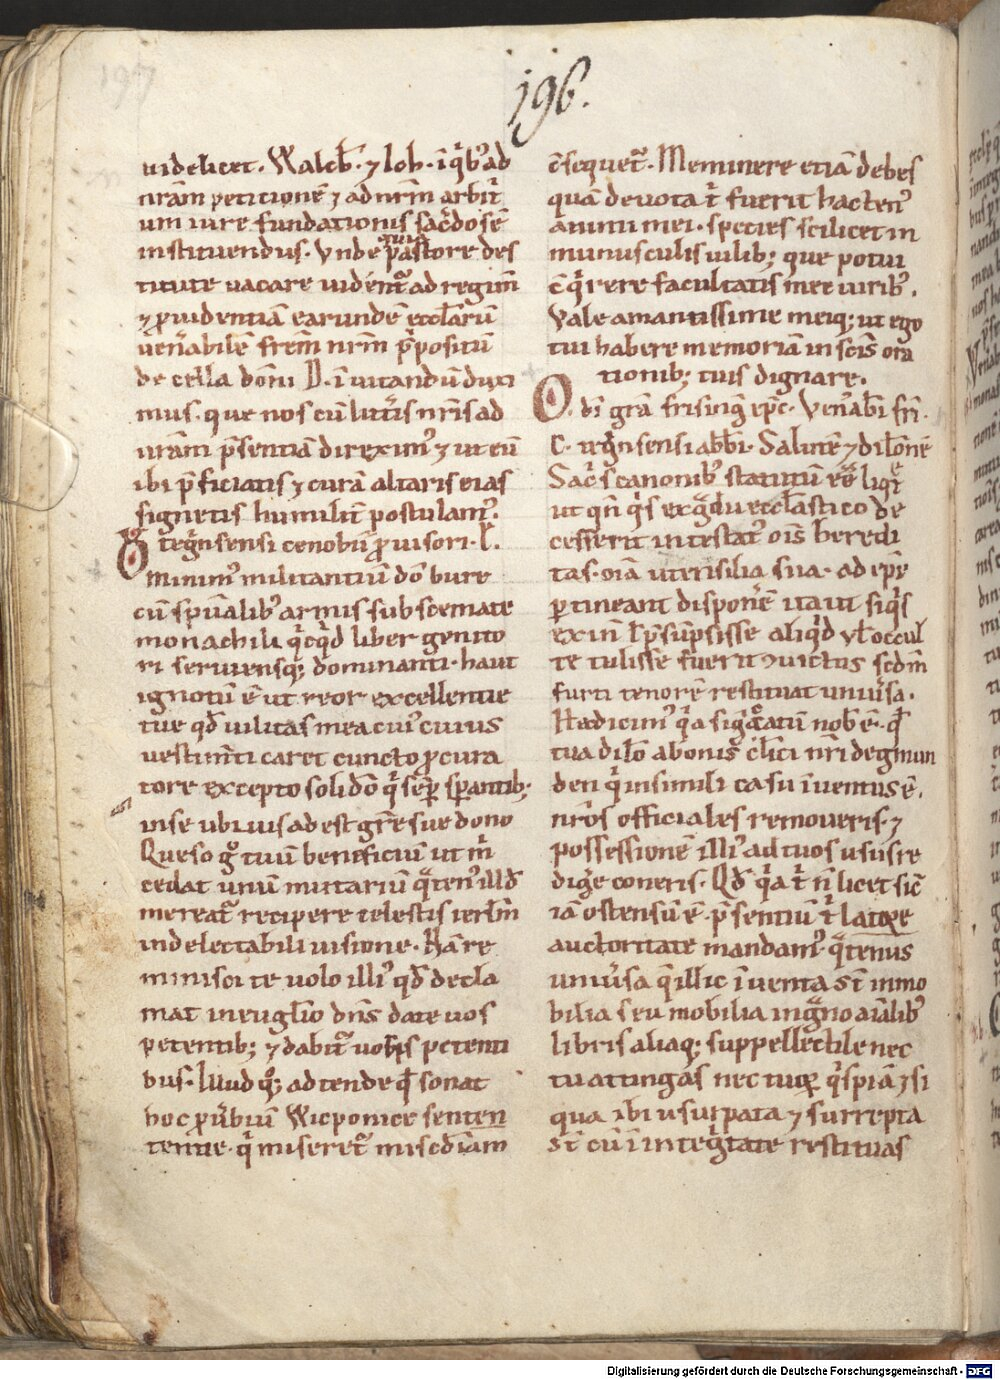 197
196.
uidelicet. Walcħ. ⁊ loh. ī q̇b᷒ ad
nr̄am petitionē ⁊ ad nr̄m arbitͥ
um iure fundationis sac̄dos ē
instituendus. Vnde pastore des
tuus
titute uacare uident᷑ ad regim̄
⁊ ꝓuidentiā earundē eccl̄arū
uen̄abilē frēm nr̄m p̄positū
de cella dom̄i D. ī uitandū duxi
mus. que nos cū litt̄is nr̄is ad
uram̄ p̄sentiā direxim᷒ ⁊ ut eū
ibi p̄ficiatis ⁊ curā altaris ei as
signetis humilit̄ postulam᷒.
O tegr̄nsensi cenobiū ꝓuisori. l.
minim᷒ militantiū do᷒ bure
cū sp̄ualib᷒ armis sub scemate
monachili qͥcqͥd liber genito
ri seruiensq; dominanti. haut
ignotū ē ut reor excellentie
tue qd̄ uilitas mea cui᷒ cuius
uestim̄ti caret cuncto ꝓcura
tore excepto solidō qͥ sēp sperantib;
in se ubiuis adest grē sue dono
Queso gͦ tuū beneficiū ut m̄
cedat unū mutariū qͣten᷒ illd̄
mereat᷑ recipere celestis ierl̄m
in delectabili uisione. Hanc re
minisci te uolo illi᷒ qd̄ decla
mat in euglīo dn̄s date uos
petentib; ⁊ dabit᷑ uobis petenti
bus. Illud q̨; adtende qd̄ sonat
hoc ꝓuerbiū Wicponice senten
tentie. qͥ miseret᷑ mis̄cdiam
c̄sequet᷑. Meminere etiā debes
quā deuota t̄ fuerit hacten᷒
animi mei. species scilicet in
munusculis uilib; que potui
c̄qͥrere facultatis mee uirib᷒.
Vale amantissime meiq; ut ego
tui habere memoriā in sc̄is ora
tionib; tuis dignare.
O. di gr̄a frisinḡ ep̄c. Ven̄abi fr̄i.
C. tegr̄nsensi abb̄i. Salutē ⁊ dil̄onē
Sac̄s canonib᷒ statutū eē̄ liqͥ
ut qn̄ qͥs ex gͣdu eccl̄astico de
cesserit intestat᷒ oīs heredi
tas. oīa utensilia sua. ad ep̄ꝫ
ꝑtineant disponēe ita ut siqͥs
exin̄ l̄ p̄sūpsisse aliqͥd ul̄ occul
te tulisse fuerit ꝯuictus scd̄m
furti tenorē restituat uniūsa.
Had icim᷒ qͥa signcatū nob̄ ē. qd̄
tua dil̄o a bonis cl̄ici nr̄i degmun
den qͥ in simili casu īuentus ē.
nr̄os officiales remoueris. ⁊
possessionē illi᷒ ad tuos usus re
diḡe coneris. Qd̄ qͥa t̄ n̄ licet sic̄
iā ostensū ē. p̄sentiū t̄ latore
auctoritate mandam᷒. qͣtenus
uniūsa q̄ illic īuenta st̄ immo
bilia seu mobilia in gͣno aīalib᷒
libris aliaq; suppellectile nec
tu attingas nec tuoꝝ qͥspiā ⁊ si
qua ibi usurpata ⁊ surrepta
st̄ cū īintegͥtate restituas
Digitalisierung gefördert durch die Deutsche Forschungsgemeinschaft - DFG